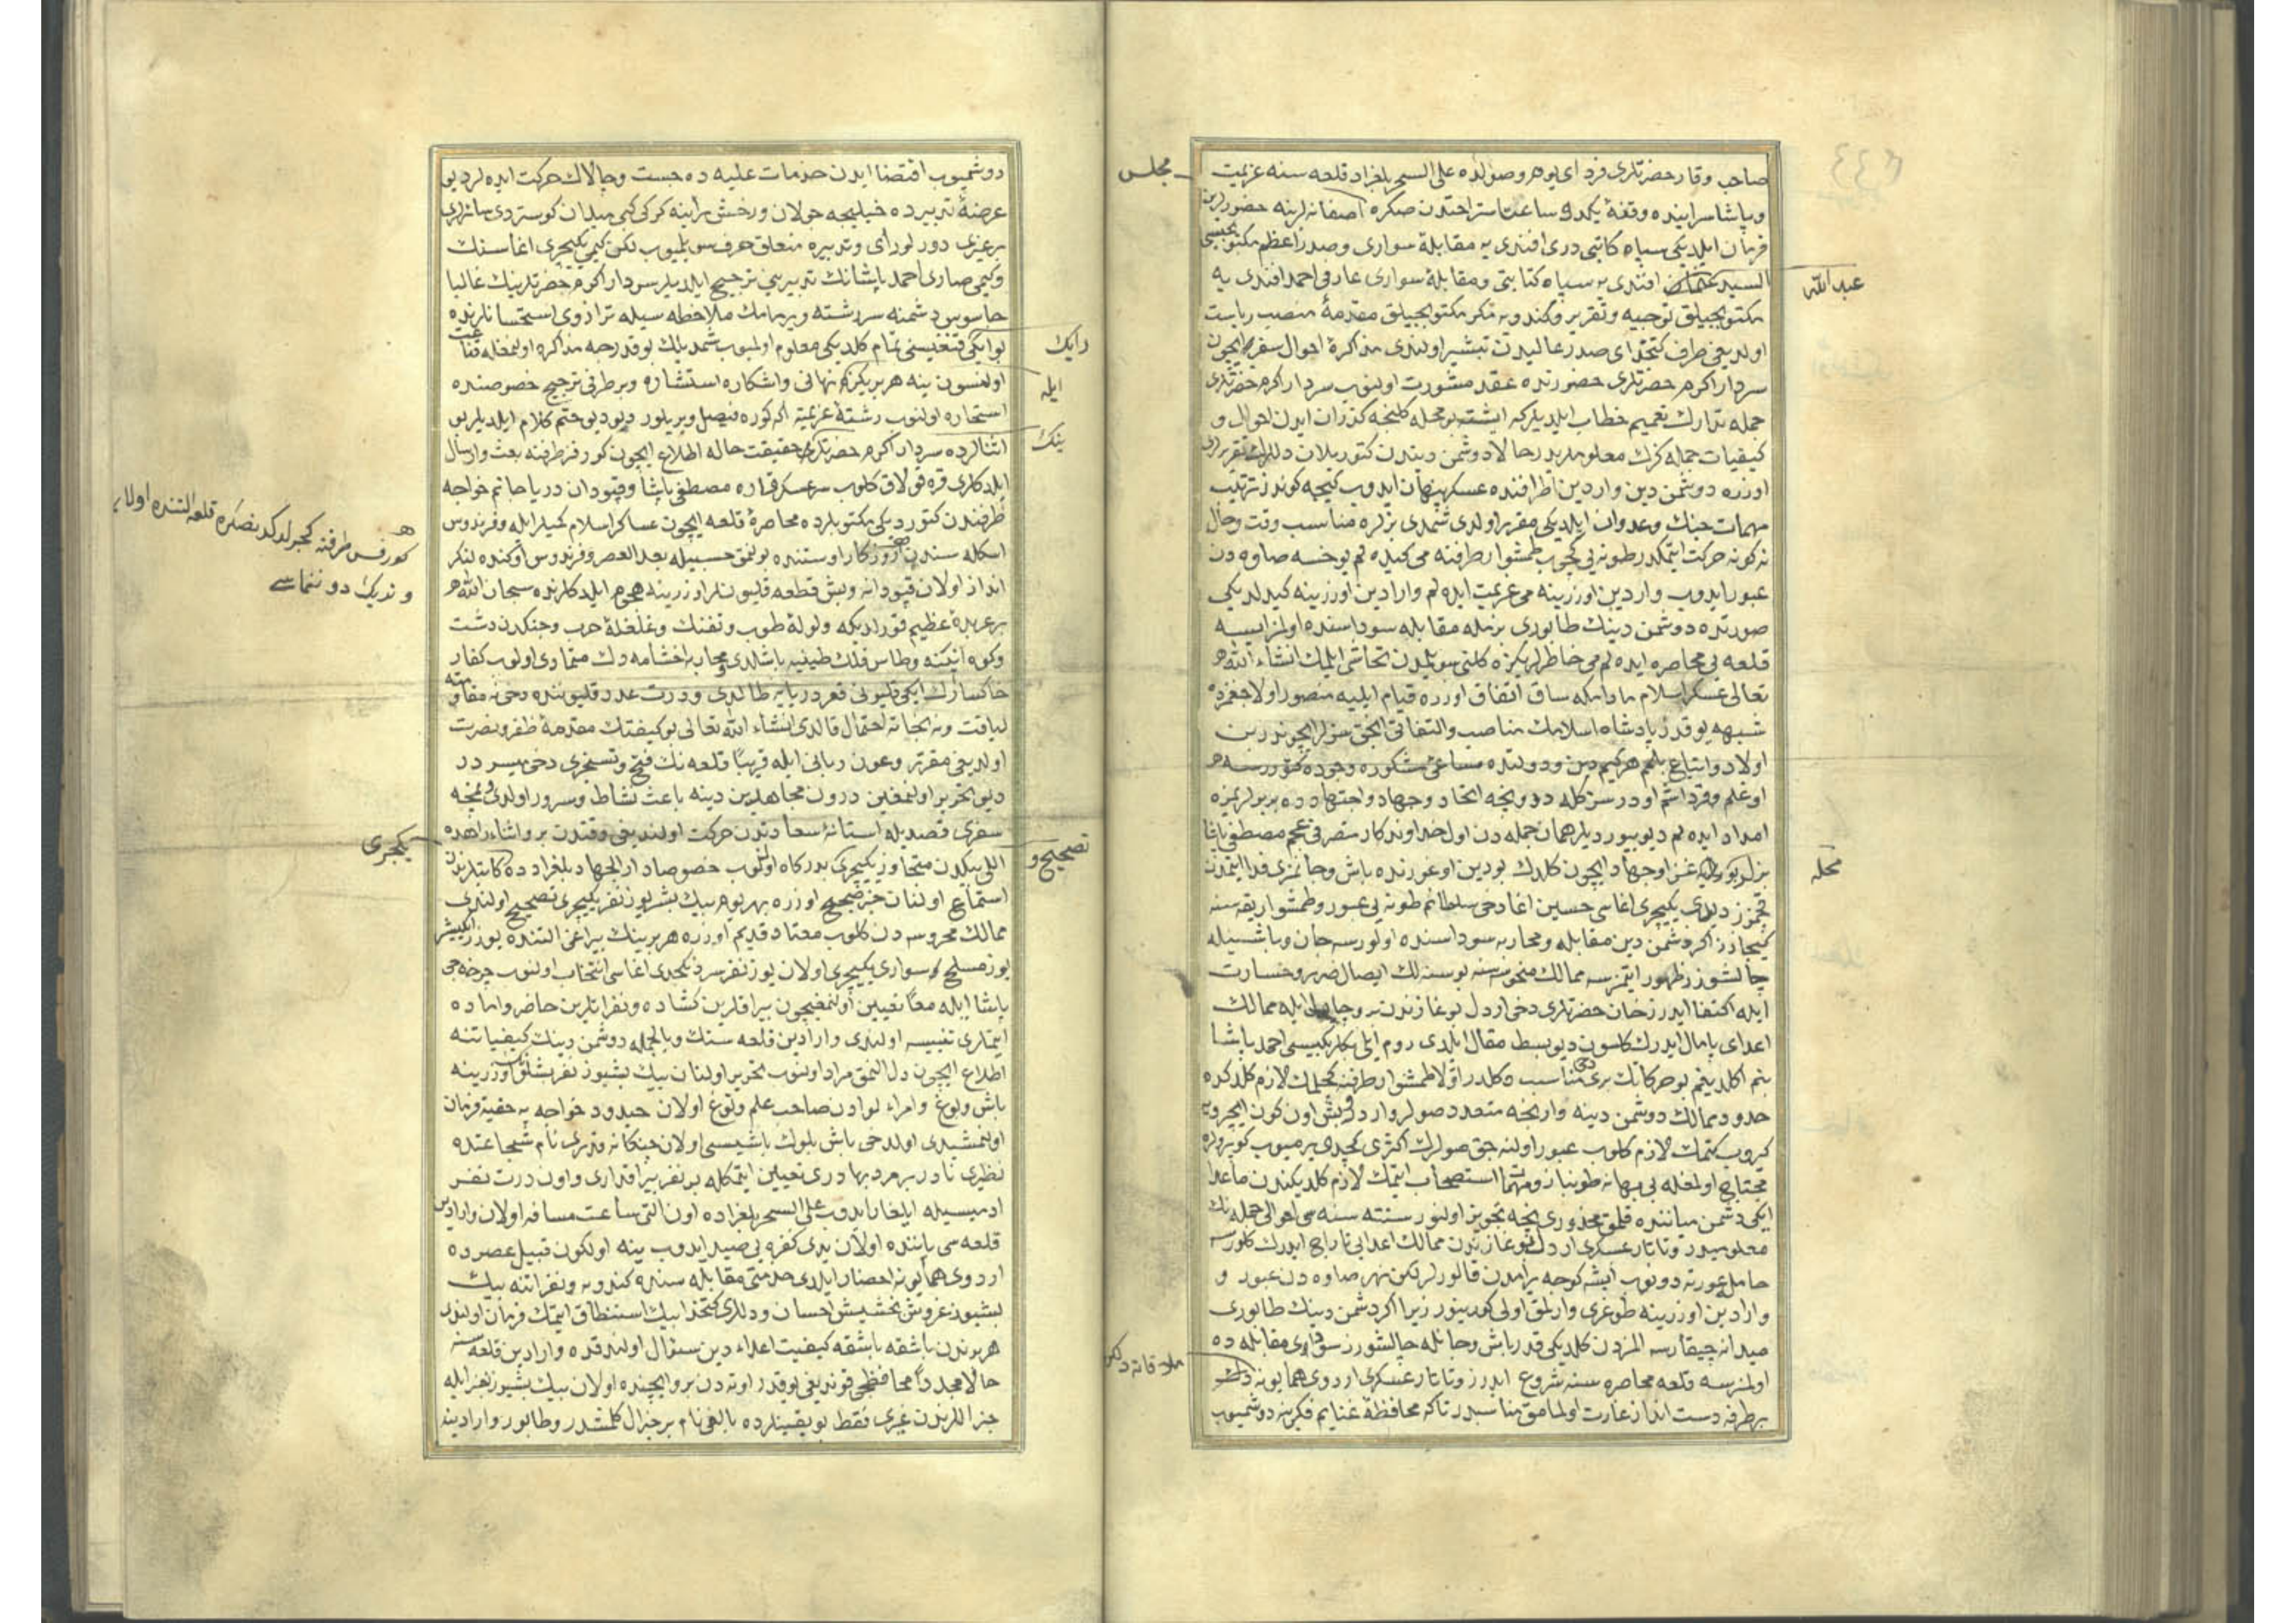 صاحب وقار حضرتلری فردای یوم وصولده علی السحر بلغراد قلعه سنه عزیمت
مجلس
و پاشا سراینده وقفهٔ یکدو ساعت استراحتدن صکره آصفانه لرینه حضورلرین
فرمان ایلدیکی سپاه کاتبی دری افندی یه مقابلهٔ سواری و صدر اعظم مکتوبجیسی
السید عثمان افندی یه سپاه کتابتی و مقابلهٔ سواری عارفی احمد افندی یه
عبد الله
مکتوبجیلق توجیه و تقریر و کندویه تکرر مکتوبجیلق مقدمهٔ منصب ریاست
اولدیغی طرف کتخدای صدر عالیدن تبشیر اولندی مذاکرهٔ احوال سفر ایچون
سردار اکرم حضرتلری حضورنده عقد مشورت اولنوب سردار اکرم حضرتلری
جمله یه تدارک تعمیم خطاب ایلدیلر که ایشته بو محله کلنجه کذران ایدن احوال و
کیفیات جمله کزک معلومیدر حالا دوشمن دیندن کتوریلان دللرک تقریرلری
اوزره دوشمن دین وارادین اطرافنده عسکر پنهان ایدوب کیجه کوندز ترتیب
مهمات جنک و عدوان ایلدیکی مقرر اولدی شمدی بزلره مناسب وقت و حال
نه کونه حرکت ایتمکدر طونه یی کچوب طمشوار طرفنه می کیده لم یوخسه صاوه دن
عبور ایدوب وارادین اوزرینه می عزیمت ایده لم وارادین اوزرینه کیدلدیکی
صورتده دوشمن دینک طابوری بزمله مقابله سوداسنده اولمز ایسه
قلعه یی محاصره ایده لم می خاطرلریکزه کلنی سویلمدن تحاشی ایلمک انشاء الله
تعالی عسکر اسلام مادامکه ساق اتفاق اوزره قیام ایلیه منصور اولاجغمزده
شبهه یوقدر پادشاه اسلامک مناصب و التفاتی انجق سزلر ایچوندر بن
اولاد و اتباع بلمم هر کیم دین و دولتده مساعیٔ مشکوره وجوده کتورر سه
اوغلم و قرداشم اودر سن کله دوونجه اتحاد و جهاد و اجتهادده بربولریمزه
امداد ایده لم دیو بیوردیلر همان جمله دن اول خداوندکار متصرفی عجم مصطفی پاشا
بزلر بو محله غزا و جهاد ایچون کلدک بو دین اوغورنده باش و جانمزی فدا ایتمدن
محله
قچمزز دیدی یکیچری اغاسی حسین اغا دخی سلطانم طونه یی عبور و طمشوار یقه سنه
کیجارز اکر دشمن دین مقابله و محاربه سوداسنده اولورسه جان و باش ایله
چالشورز ظهور ایتمزسه ممالک منحوسه سنه بو سنه لک ایصال ضرر و خسارت
ایله اکتفا ایدرز خان حضرتلری دخی اردل بوغازندن ایله ممالک
اعدای پامال ایدرک کلسون دیو بسط مقال ایلدی روم ایلی بکلربکیسی احمد پاشا
بنم اکلدیغم بو حرکاتک بری دخی مناسب دکلدر اوّلا طمشوار طرفنه کچلمک لازم کلدکده
حدود ممالک دوشمن دینه وارنجه متعدد صولر واردر و بش اون کون ایچرویه
کیروب کتمک لازم کلوب عبور اولنه جق صولرک اکثری کچدی ویرمیوب کوپرولره
محتاج اولمغله بی بهانه طونبازو استصحاب ایتمک لازم کلدیکندن ماعدا
ایکی دشمن میاننده قلمق محذوری نیجه تجویز اولنور سنته سنه سی احوالی جمله نک
معلومیدر و تاتار عسکری اردل بوغازندن ممالک اعدایی تاراج ایدرک کلورسه
حامل عورته دونوب ایشه کوجه یرامدن قالورلر لکن نهر صاوه دن عبور و
وارادین اوزرینه طوغری وارلمق اولی کورینور زیرا اکر دشمن دینک طابوری
میدانه چیقارسه المزدن کلدیکی قدر باش و جانله چالشورز سوقاری مقابله ده
اولمزسه قلعه محاصره سنه شروع ایدرز و تاتار عسکری اردوی همایونه دکین
ملاقاته دکین
برطرفه دست انداز غارت اولمامق مناسبدر تا که محافظهٔ غنایم فکرینه دوشمیوب
دوشمیوب اقتضا ایدن خدمات علیه ده جست و چالاک حرکت ایده لر دیو
عرضهٔ تدبیرده خیلیجه جولان و رخش براینه کرکی کبی میدان کوستردی سائرلری
بر غیری دورلو رای و تدبیره متعلق حرف سویلمیوب لکن کیمی یکیچری اغاسنک
و کیمی صاری احمد پاشانک تدبیرینی ترجیح ایلدیلر سردار اکرم حضرتلرینک غالبا
جاسوس دشمنه سررشته ویرمامک ملاحظه سیله ترازوی استحسانلرنده
بو ایکی قنغیسنی تمام کلدیکی معلوم اولمیوب شمدیلک بو قدرجه مذاکره اولمغله قناعت
رایک
اولنسون ینه هر بریکزه نهانی و اشکاره استشاره و بر طرفی ترجیح خصوصنده
ایله
استخاره اولنوب رشتهٔ عزیمته اکه کوره فیصل ویریلور دیو دیو ختم کلام ایلدیلر بو
اثنالرده سردار اکرم حضرتلری حقیقت حاله اطلاع ایچون کورفز طرفنه بعث و ارسال
ینک
ایلدکلری قره قولاق کلوب سرعسکر قاره مصطفی پاشا و قپودان دریا جانم خواجه
طرفندن کتوردیکی مکتوبلرده محاصرهٔ قلعه ایچون عساکر اسلام کمیلر ایله و فرندوس
کورفس طرفنه کچرلر کدیفصکره قلعه التنده اولان
اسکله سندن روزکار اوستنده بولنمق حسبیله بعد العصر و فرندوس اوکنده لنکر
و ندیک دوننماسی
انداز اولان قپودانه و بش قطعه قلیونلر اوزرینه هجوم ایلدکلرنده سبحان الله
بر عربدهٔ عظیم قوپار دیکه ولولهٔ طوب و تفنک و غلغلهٔ حرب و جنکدن دشت
و کوه انیکنه و طاس فلک طنینه باشلدی و محاربه اخشامه دک متمادی اولوب کفار
خاکسارک ایکی قلیونی قعر دریایه طالدی و درت عدد قلیوننده دخی نه مقاومته
لیاقت و نه نجاته احتمال قالدی انشاء الله تعالی بو کیفیتک مقدمهٔ ظفر و نصرت
اولدیغی مقرر و عون ربانی ایله قریبا قلعه نک فتح و تسخیری دخی میسردر
دیو تحریر اولنمغین درون مجاهدین دینه باعث نشاط و سرور اولدی و نمچه
سفری قصدیله استانهٔ سعادتدن حرکت اولندیغی وقتدن برو اشناء راهده
یکیچری
اللی بیکدن متجاوز یکیچری بدرکاه اولنوب خصوصا دار الجهاد بلغرادده کاتبلرندن
تصحیح و
استماع اولنان خبر صحیح اوزره بهر یوم بیک بشر یوز نفر یکیچری تصحیح اولندی
ممالک محروسه دن کلوب معتاد قدیم اوزره هر برینک بیراغی التنده یوز ایکیشر
یوز مسلح سواری یکیچری اولان یوز نفر سردنکچدی اغاسی انتخاب اولنوب چرخه جی
پاشا ایله معا تعیین اولنمغیچون بیراقلرین کشاده و نفراتلرین حاضر و اماده
ایتملری تنبیه اولندی وارادین قلعه سنک و بالجمله دوشمن دینک کیفیاتنه
اطلاع ایچون دل المق مراد اولنوب تحریر اولنان بیک بشیوز نفر بشلو اوزرینه
باش و بوغ و امراء لوادن صاحب علم و طوغ اولان حیدود خواجه یه خفیه فرمان
اولنمشیدی اول دخی باش بلوک باشیسی اولان چنکانه قدری نام شجاعتده
نظیری نادر بر مرد بهادری تعیین ایتمکله بر نفر بیراقداری و اون درت نفر
ادمیسیله ایلغار ایدوب علی السحر بلغرادده اون التی ساعت مسافه اولان وارادین
قلعه سی یاننده اولان یدی کفره یی صید ایدوب ینه اولکون قبیل عصرده
اردوی همایونه احضار ایلدی خدمتی مقابله سنده کندویه و نفراتنه بیک
بشیوز غروش بخشیش احسان و دللری کتخدا بیک استنطاق ایتمک فرمان اولندی
هر بوندن باشقه باشقه کیفیت اعداء دین سئوال اولندقده وارادین قلعه سنه
حالا مجددا محافظه جی قوندیغی یوقدر اوته دن برو ایچنده اولان بیک بشیوز نفر ایله
جنراللرندن غیری فقط بو یقینلرده بالفی نام بر جنرال کلمشدر و طابور وارادینه